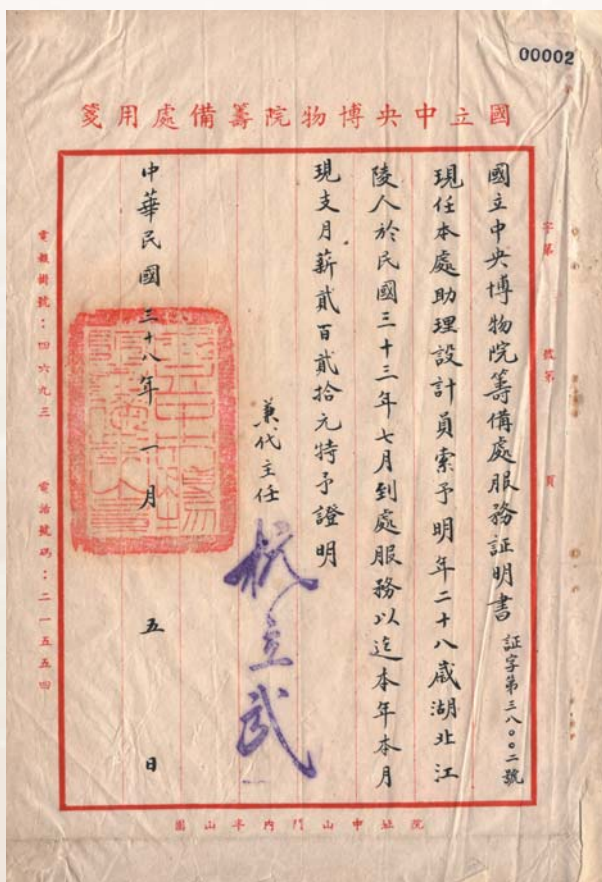 00002
國立中央博物院籌備處用箋
國立中央博物院籌備處服務証明書 証字第三八〇〇二號
現任本處助理設計員索予明年二十八歲湖北江
陵人於民國三十三年七月到處服務以迄本年本月
現支月薪貳百貳拾元特予證明
兼代主任
杭立武
中華民國三十八年一月五日
字第 號第 頁
電報掛號：四六九三 電話號碼：二一五五四
院址中山門內半山園